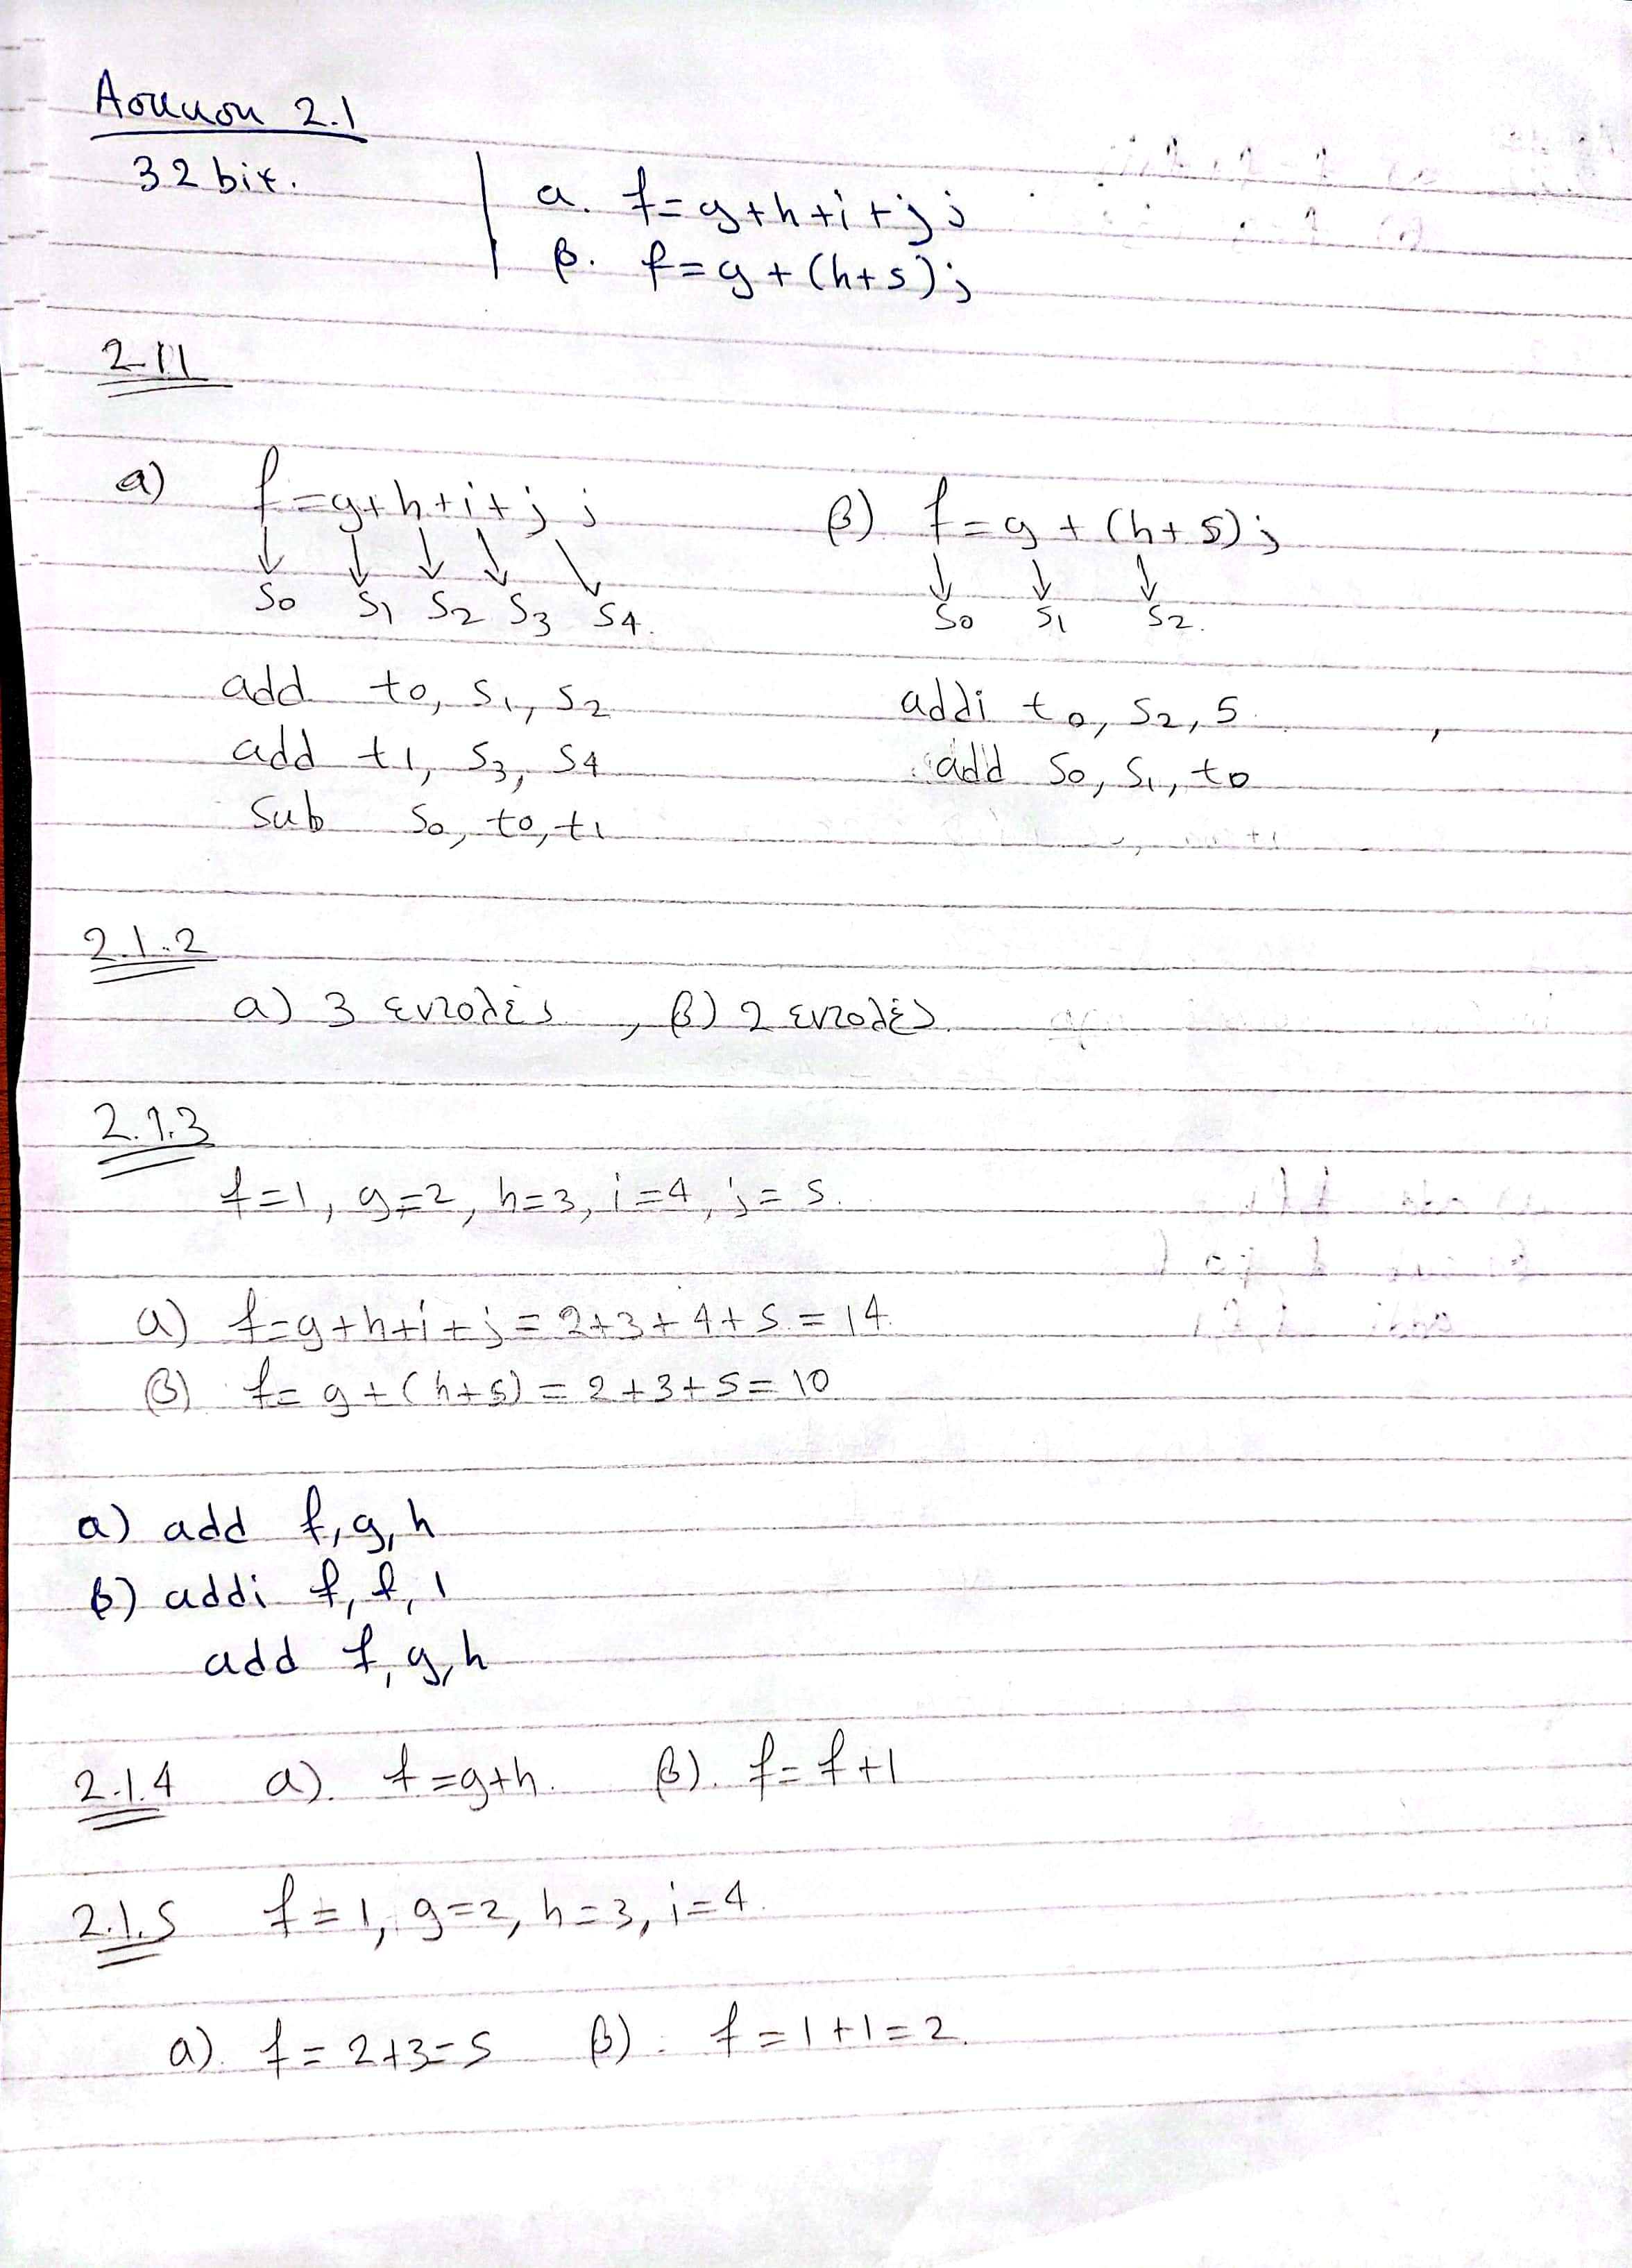 Άσκηση 2.1
32 bit.
a. f=g+h+i+j;
β. f=g+(h+5);
2.11
a) f=g+h+i+j;
s0 s1 s2 s3 s4.
add t0, s1, s2
add t1, s3, s4
sub s0, t0, t1
β) f=g+(h+5);
s0 s1 s2.
addi t0, s2, 5
add s0, s1, t0
2.1.2
a) 3 εντολές, β) 2 εντολές.
2.1.3
f=1, g=2, h=3, i=4, j=5.
a) f=g+h+i+j=2+3+4+5=14
β) f=g+(h+5)=2+3+5=10
a) add f,g,h
β) addi f,f,1
add f,g,h
2.1.4 a). f=g+h. β). f=f+1
2.1.5 f=1, g=2, h=3, i=4.
a). f=2+3=5 β). f=1+1=2.